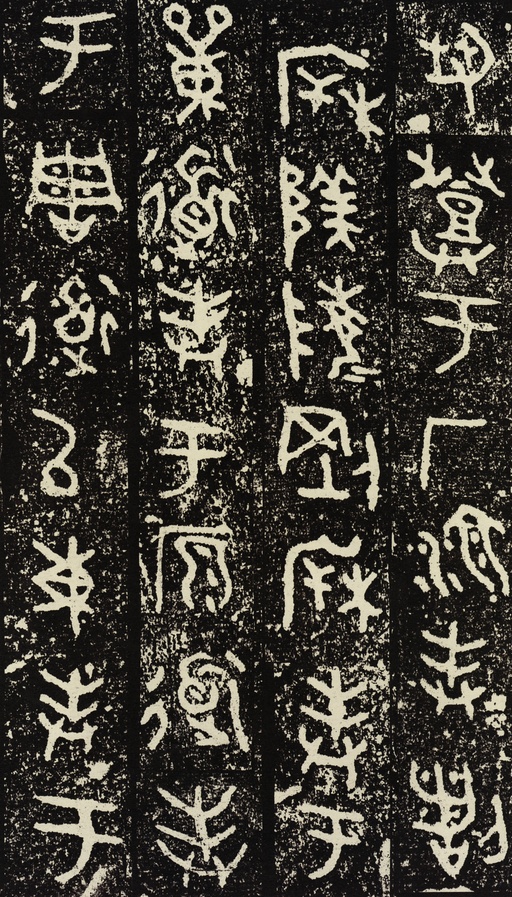 芻登于厂湶封割
柝陵剛柝封于
單道封于原道封
于周道以東封于